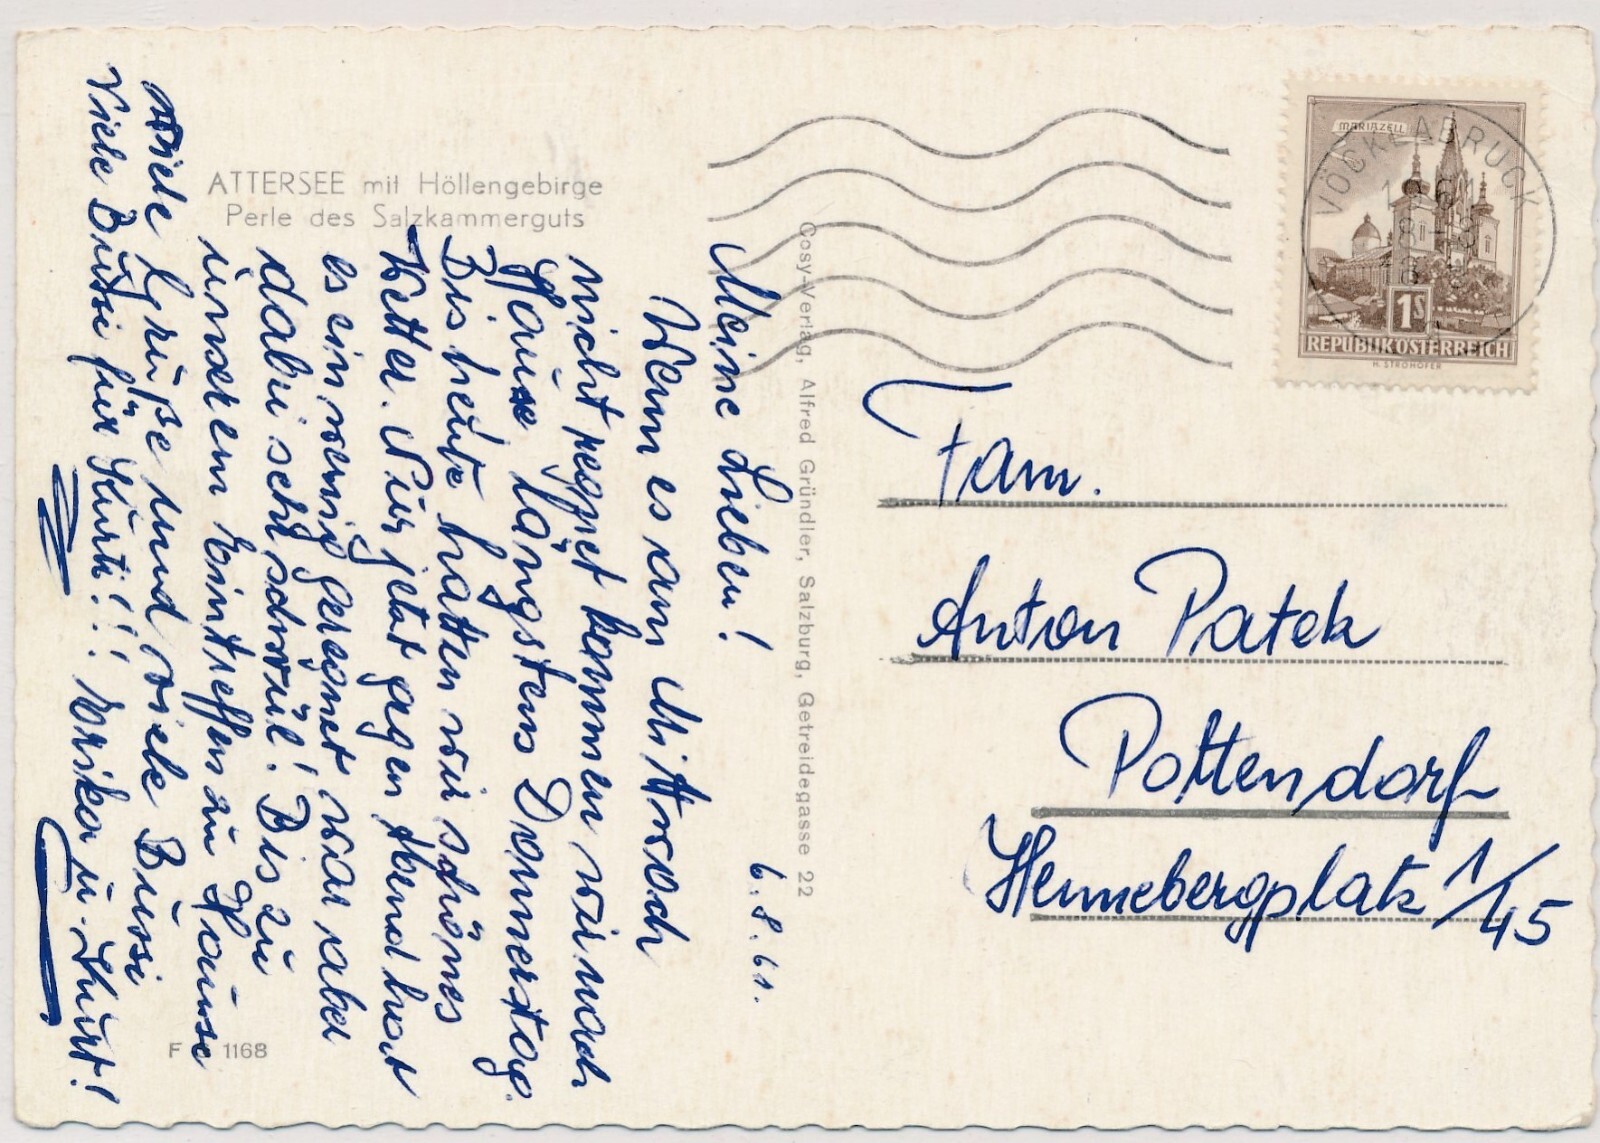 ATTERSEE mit Höllengebirge
Perle des Salzkammerguts
6. 8. 61.
Meine Lieben!
Wenn es am Mittwoch
nicht regnet kommen wir nach
Hause längstens Donnerstag.
Bis heute hatten wir schönes
Wetter. Nur jetzt gegen Abend hat
es ein wenig geregnet war aber
dabei sehr schwül! Bis zu
unserem Eintreffen zu Hause
viele Grüße und viele Bussi
Viele Bussi für Kurti!!! Erika u. Kurt!
F 1168
Cosy-Verlag, Alfred Gründler, Salzburg, Getreidegasse 22
MARIAZELL
1S
REPUBLIK ÖSTERREICH
H. STROHOFER
VÖCKLABRUCK
Fam.
Anton Patek
Pottendorf
Hennebergplatz 1/45